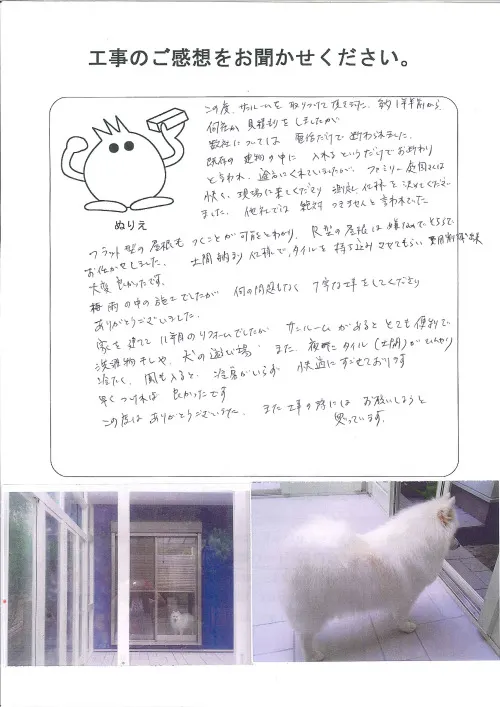 工事のご感想をお聞かせください。
この度、サンルームを取りつけて頂きました。約1年半前から、
何社か見積りをしましたが
数社については電話だけで断わられました。
既存の建物の中に入れるというだけでお断わり
と言われ、途方にくれていましたが、ファミリー庭園さんは
快く、現場に来てくださり測定、仕様を決めてくださいました。
ました。他社では絶対つきませんと言われていた
ぬりえ
フラット型の屋根もつくことが可能とわかり、R型の屋根は嫌なので
お任かせしました。土間納まり仕様で、タイルを持ち込みさせてもらい
大変良かったです。
梅雨の中の施工でしたが何の問題もなく丁寧な工事をしてくださり
ありがとうございました。
家を建てて11年目のリフォームでしたがサンルームがあるととても便利で
洗濯物干しや、犬の遊び場また、夜時にタイル(土間)がひんやり
冷たく、風も入ると、冷房がいらず快適にすごせております
早くつければ良かったです
この度はありがとうございました。また工事の際にはお願いしようと
思っています。